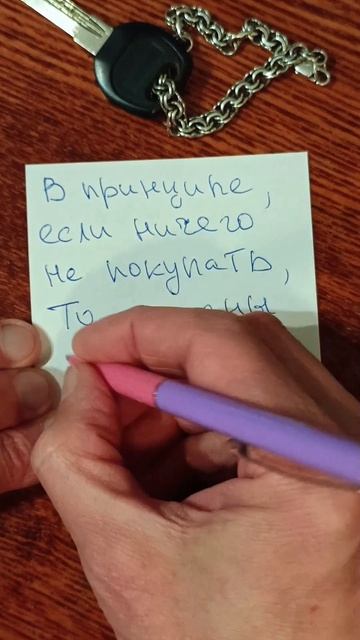 В принципе,
если ничего
не покупать,
То